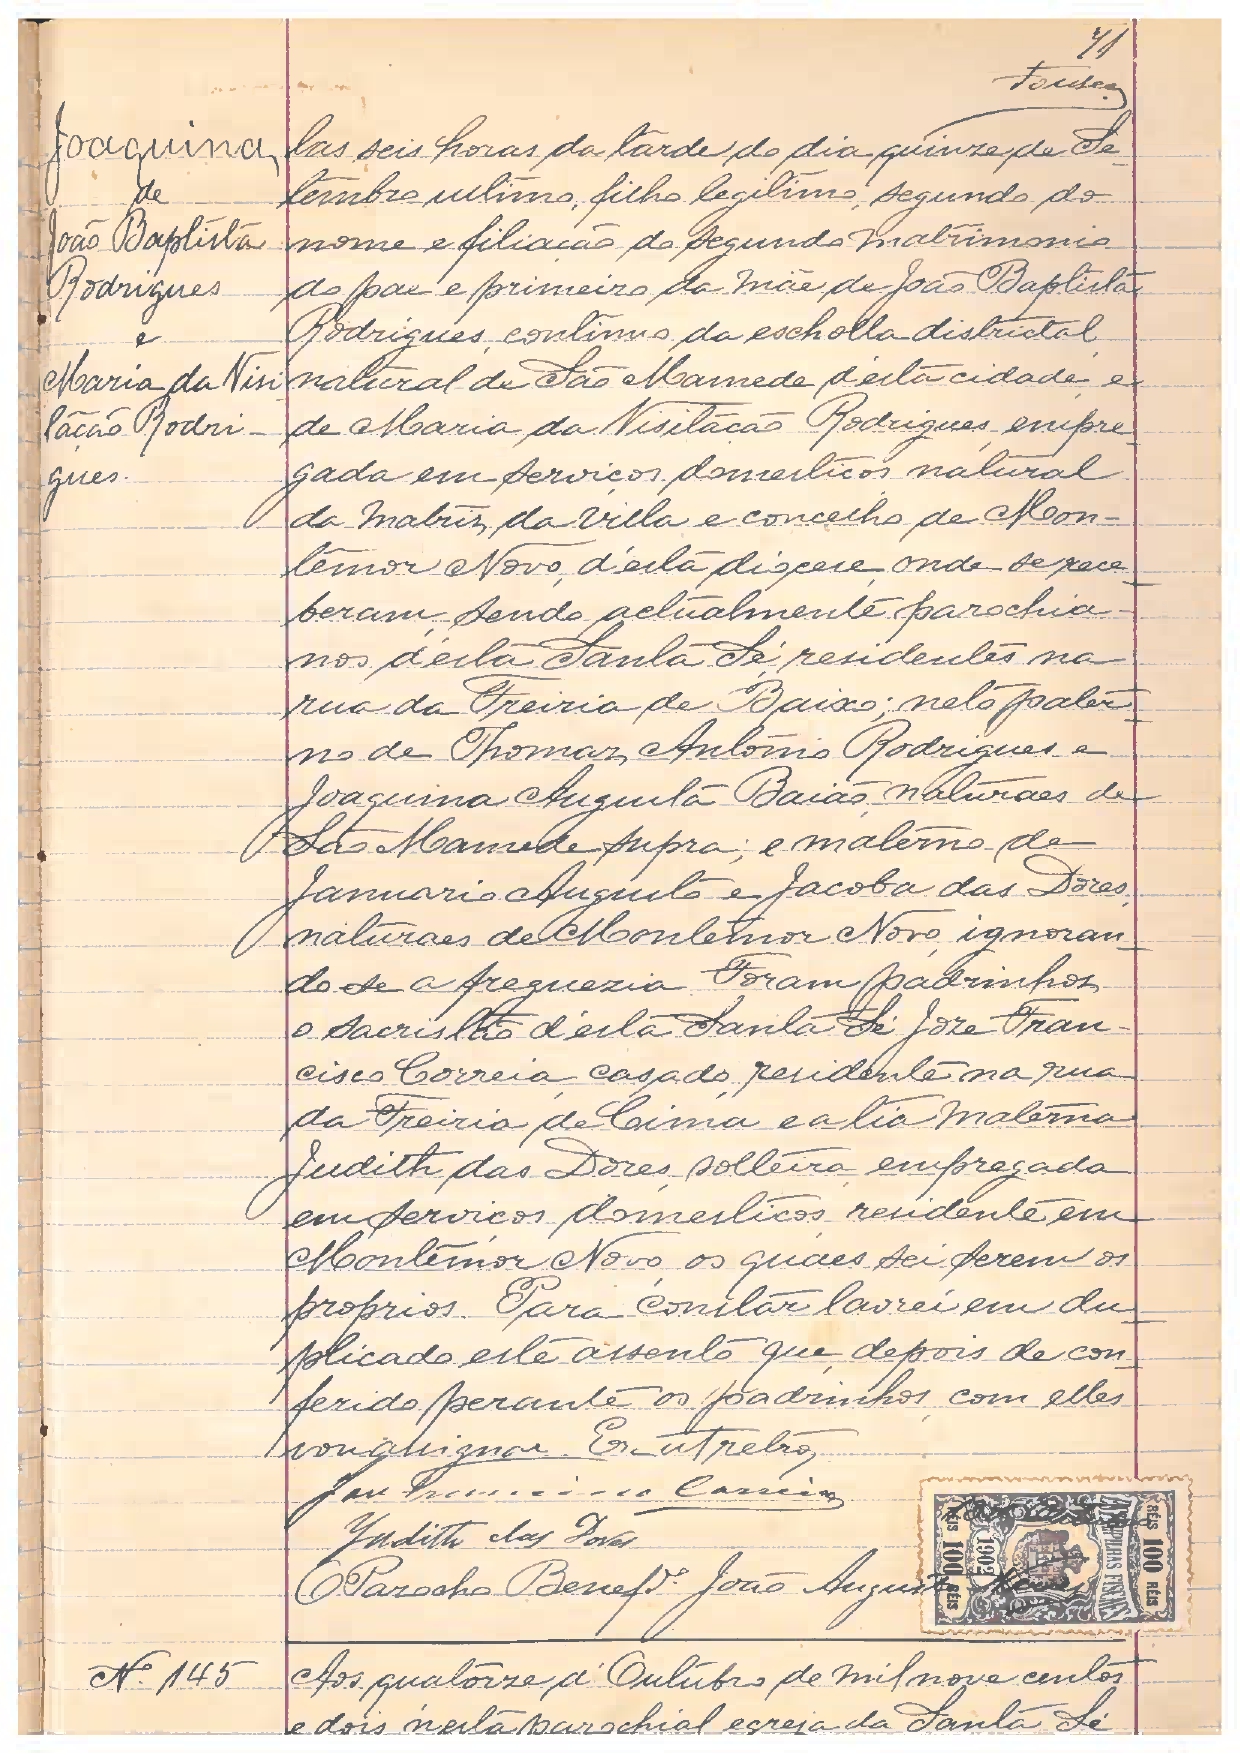 71
Fonseca
Joaquina
de
João Baptista
Rodrigues
e
Maria da Visi
tação Rodri-
gues.
las seis horas da tarde do dia quinze de Se-
tembro ultimo, filho legitimo, segundo do
nome e filiação do segundo matrimonio
do pae e primeiro da mãe de João Baptista
Rodrigues, continuo da escholla districtal,
natural de São Mamede d'esta cidade, e
de Maria da Visitação Rodrigues, empre-
gada em serviços domesticos natural
da Matriz da Villa e concelho de Mon-
temor Novo, d'esta diocese, onde se rece-
beram, sendo actualmente parochia-
nos d'esta Santa Sé, residentes na
rua da Freiria de Baixo; neto pater-
no de Thomaz Antonio Rodrigues e
Joaquina Augusta Baião, naturaes de
São Mamede supra; e materno de
Januario Augusto e Jacoba das Dores,
naturaes de Montemor Novo, ignoran-
do-se a freguezia. Foram padrinhos
o sacristão d'esta Santa Sé Joze Fran-
cisco Correia, casado, residente na rua
da Freiria de Cima e a tia materna
Judith das Dores, solteira, empregada
em serviços domesticos, residente em
Montemor Novo, os quaes sei serem os
proprios. Para constar lavrei em du-
plicado este assento que, depois de con-
ferido perante os padrinhos, com elles
vou assignar. Era ut retro,
Joze Francisco Correia
Judith das Dores
O Parocho Benef.do João Augusto
RÉIS 100 RÉIS
1902
ESTAMPILHAS FISCAES
RÉIS 100 RÉIS
Nº 145
Aos quatorze d'Outubro de mil nove centos
e dois n'esta parochial egreja da Santa Sé